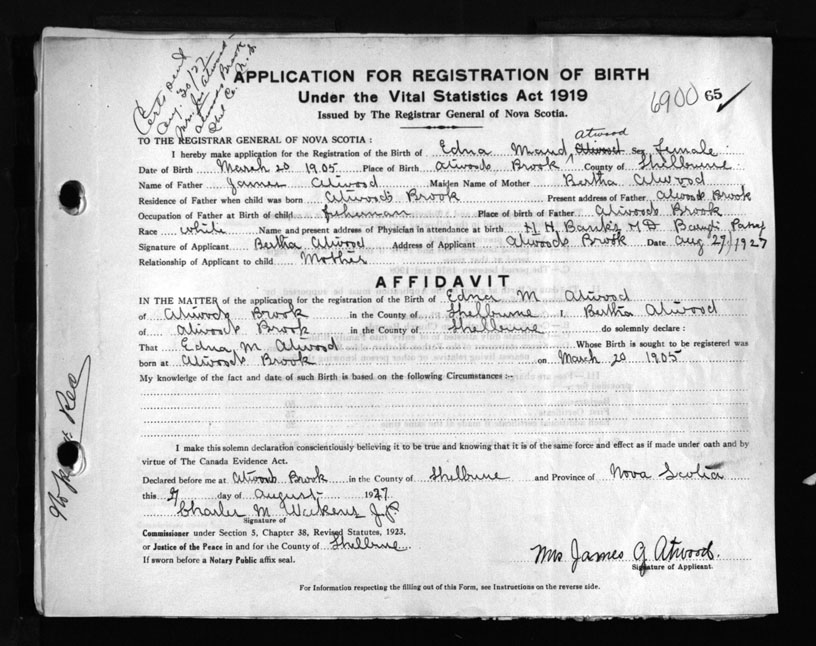 Certs sent
Aug. 30/27
Mrs. Jas. Atwood
Atwoods Brook
Shel Co. N.S.
APPLICATION FOR REGISTRATION OF BIRTH
Under the Vital Statistics Act 1919
6900 65 ✓
Issued by The Registrar General of Nova Scotia.
TO THE REGISTRAR GENERAL OF NOVA SCOTIA :
Atwood
I hereby make application for the Registration of the Birth of Edna Maud Atwood Sex Female
Date of Birth March 20 1905 Place of Birth Atwoods Brook County of Shelburne
Name of Father James Atwood Maiden Name of Mother Bertha Atwood
Residence of Father when child was born Atwoods Brook Present address of Father Atwoods Brook
Occupation of Father at Birth of child fisherman Place of birth of Father Atwoods Brook
Race white Name and present address of Physician in attendance at birth H. H. Banks MD
Signature of Applicant Bertha Atwood Address of Applicant Atwoods Brook Date Aug 27, 1927
Relationship of Applicant to child Mother
AFFIDAVIT
IN THE MATTER of the application for the registration of the Birth of Edna M Atwood
of Atwoods Brook in the County of Shelburne I, Bertha Atwood
of Atwoods Brook in the County of Shelburne do solemnly declare :
That Edna M. Atwood Whose Birth is sought to be registered was
born at Atwoods Brook on March 20 1905
My knowledge of the fact and date of such Birth is based on the following Circumstances :-
I make this solemn declaration conscientiously believing it to be true and knowing that it is of the same force and effect as if made under oath and by
virtue of The Canada Evidence Act.
Declared before me at Atwoods Brook in the County of Shelburne and Province of Nova Scotia
this 27 day of August 1927
Charles M J.P.
Signature of
Commissioner under Section 5, Chapter 38, Revised Statutes, 1923.
or Justice of the Peace in and for the County of Shelburne
If sworn before a Notary Public affix seal.
Mrs James G Atwood.
Signature of Applicant.
For Information respecting the filling out of this Form, see Instructions on the reverse side.
Rec